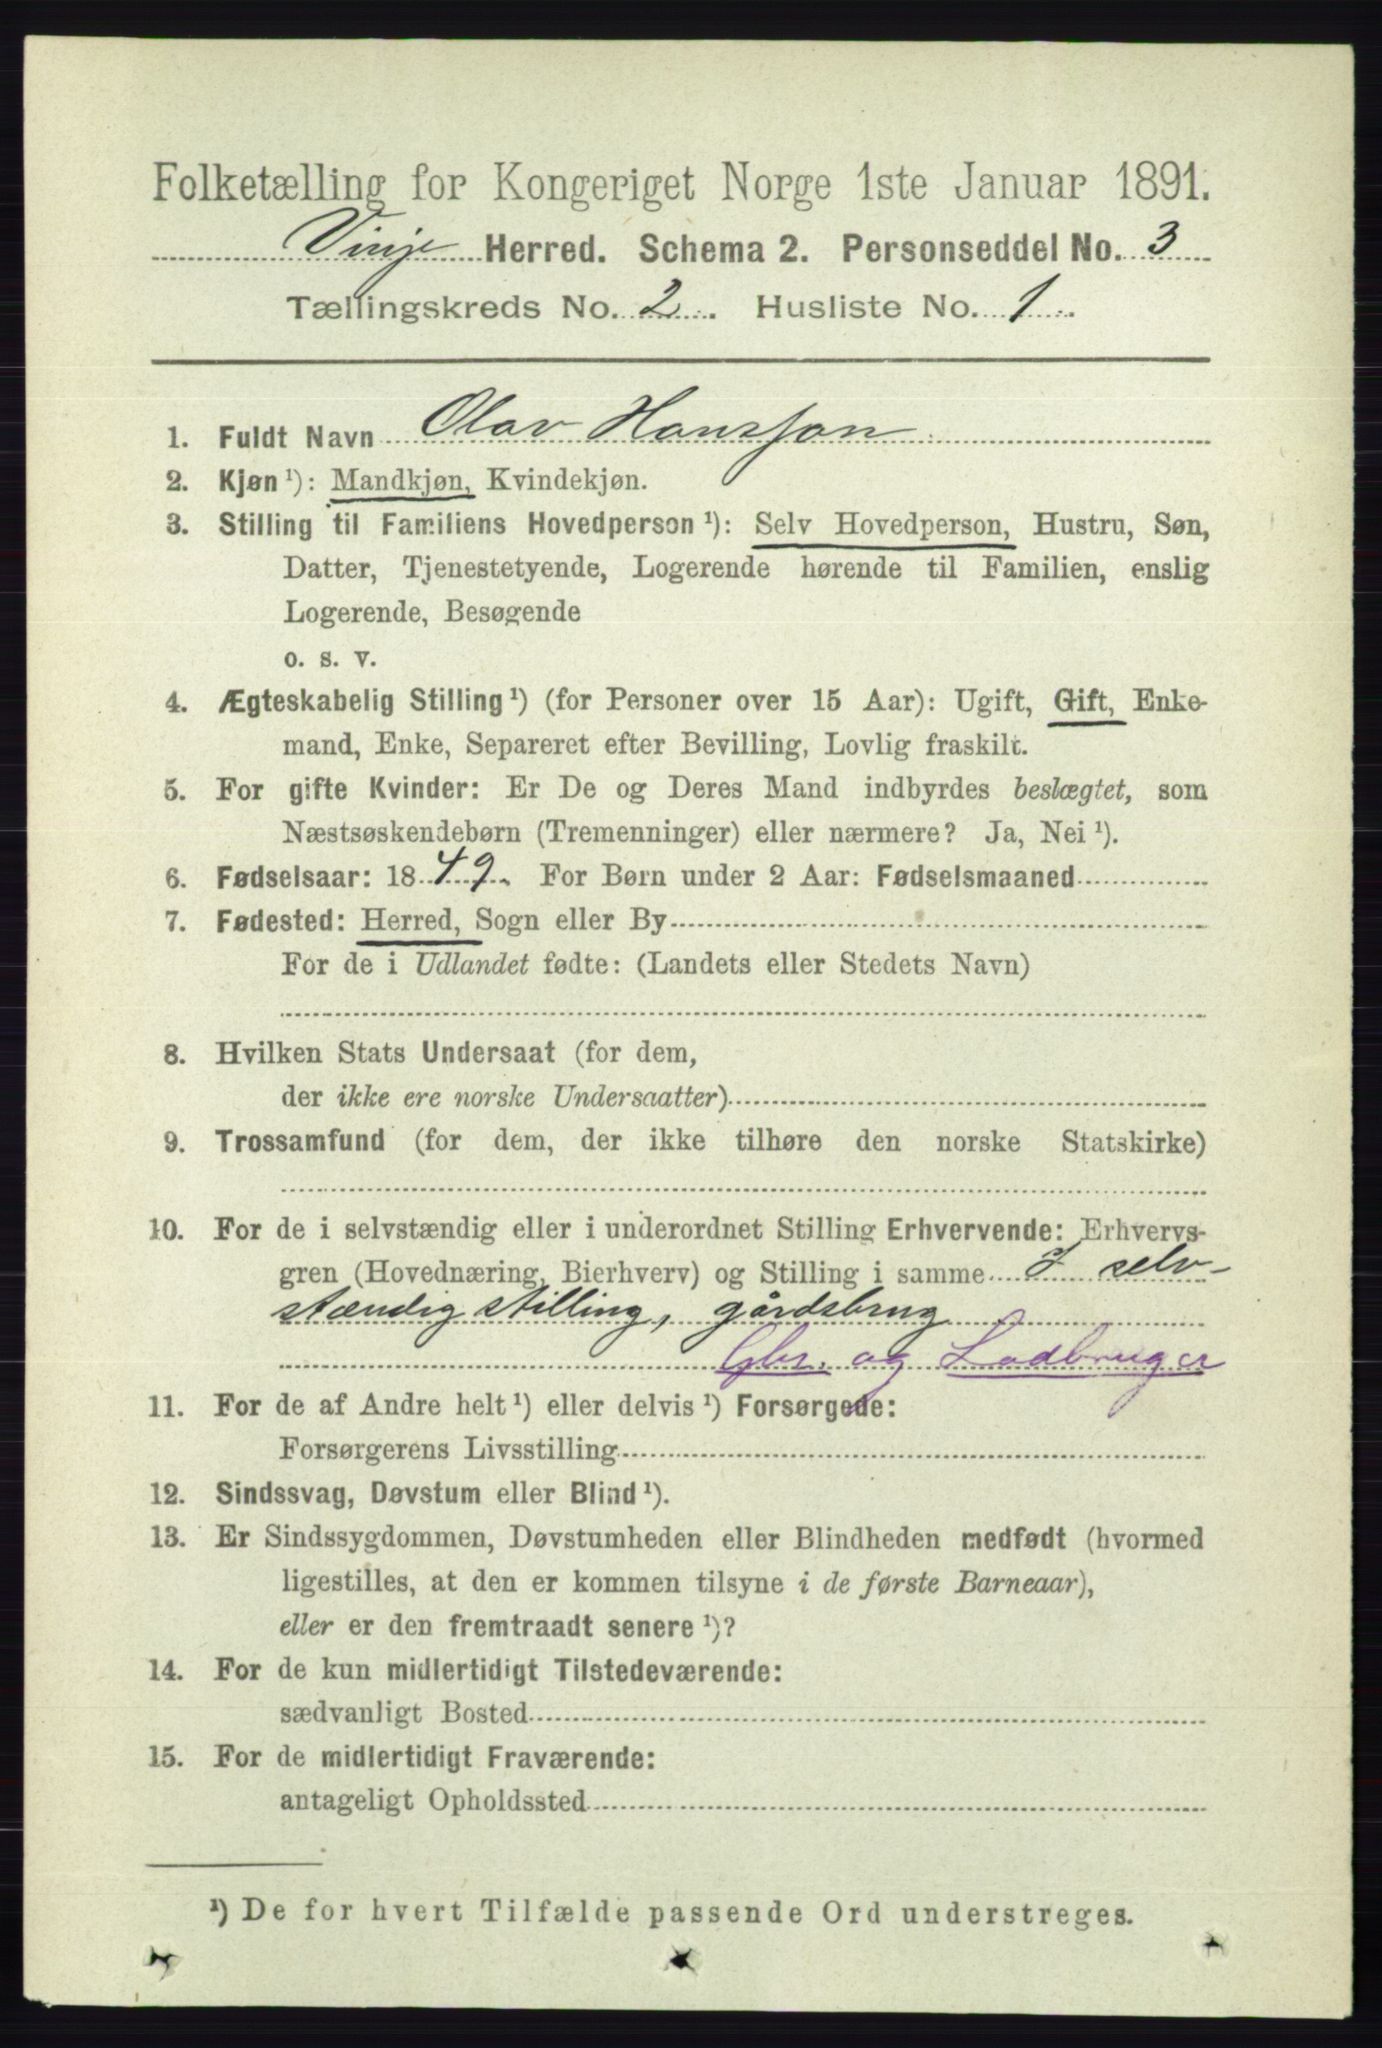 Folketælling for Kongeriget Norge 1ste Januar 1891.
Vinje Herred. Schema 2. Personseddel No. 3
Tællingskreds No. 2. Husliste No. 1.
1. Fuldt Navn Olav Hansson
2. Kjøn ¹): Mandkjøn, Kvindekjøn.
3. Stilling til Familiens Hovedperson ¹): Selv Hovedperson, Hustru, Søn,
Datter, Tjenestetyende, Logerende hørende til Familien, enslig
Logerende, Besøgende
o. s. v.
4. Ægteskabelig Stilling ¹) (for Personer over 15 Aar): Ugift, Gift, Enke-
mand, Enke, Separeret efter Bevilling, Lovlig fraskilt.
5. For gifte Kvinder: Er De og Deres Mand indbyrdes beslægtet, som
Næstsøskendebørn (Tremenninger) eller nærmere? Ja, Nei ¹).
6. Fødselsaar: 1849. For Børn under 2 Aar: Fødselsmaaned
7. Fødested: Herred, Sogn eller By
For de i Udlandet fødte: (Landets eller Stedets Navn)
8. Hvilken Stats Undersaat (for dem,
der ikke ere norske Undersaatter)
9. Trossamfund (for dem, der ikke tilhøre den norske Statskirke)
10. For de i selvstændig eller i underordnet Stilling Erhvervende: Erhvervs-
gren (Hovednæring, Bierhverv) og Stilling i samme I selv-
stændig stilling, gårdsbrug
Gbr. og Lodbruger
11. For de af Andre helt ¹) eller delvis ¹) Forsørgede:
Forsørgerens Livsstilling
12. Sindssvag, Døvstum eller Blind ¹).
13. Er Sindssygdommen, Døvstumheden eller Blindheden medfødt (hvormed
ligestilles, at den er kommen tilsyne i de første Barneaar),
eller er den fremtraadt senere ¹)?
14. For de kun midlertidigt Tilstedeværende:
sædvanligt Bosted
15. For de midlertidigt Fraværende:
antageligt Opholdssted
¹) De for hvert Tilfælde passende Ord understreges.